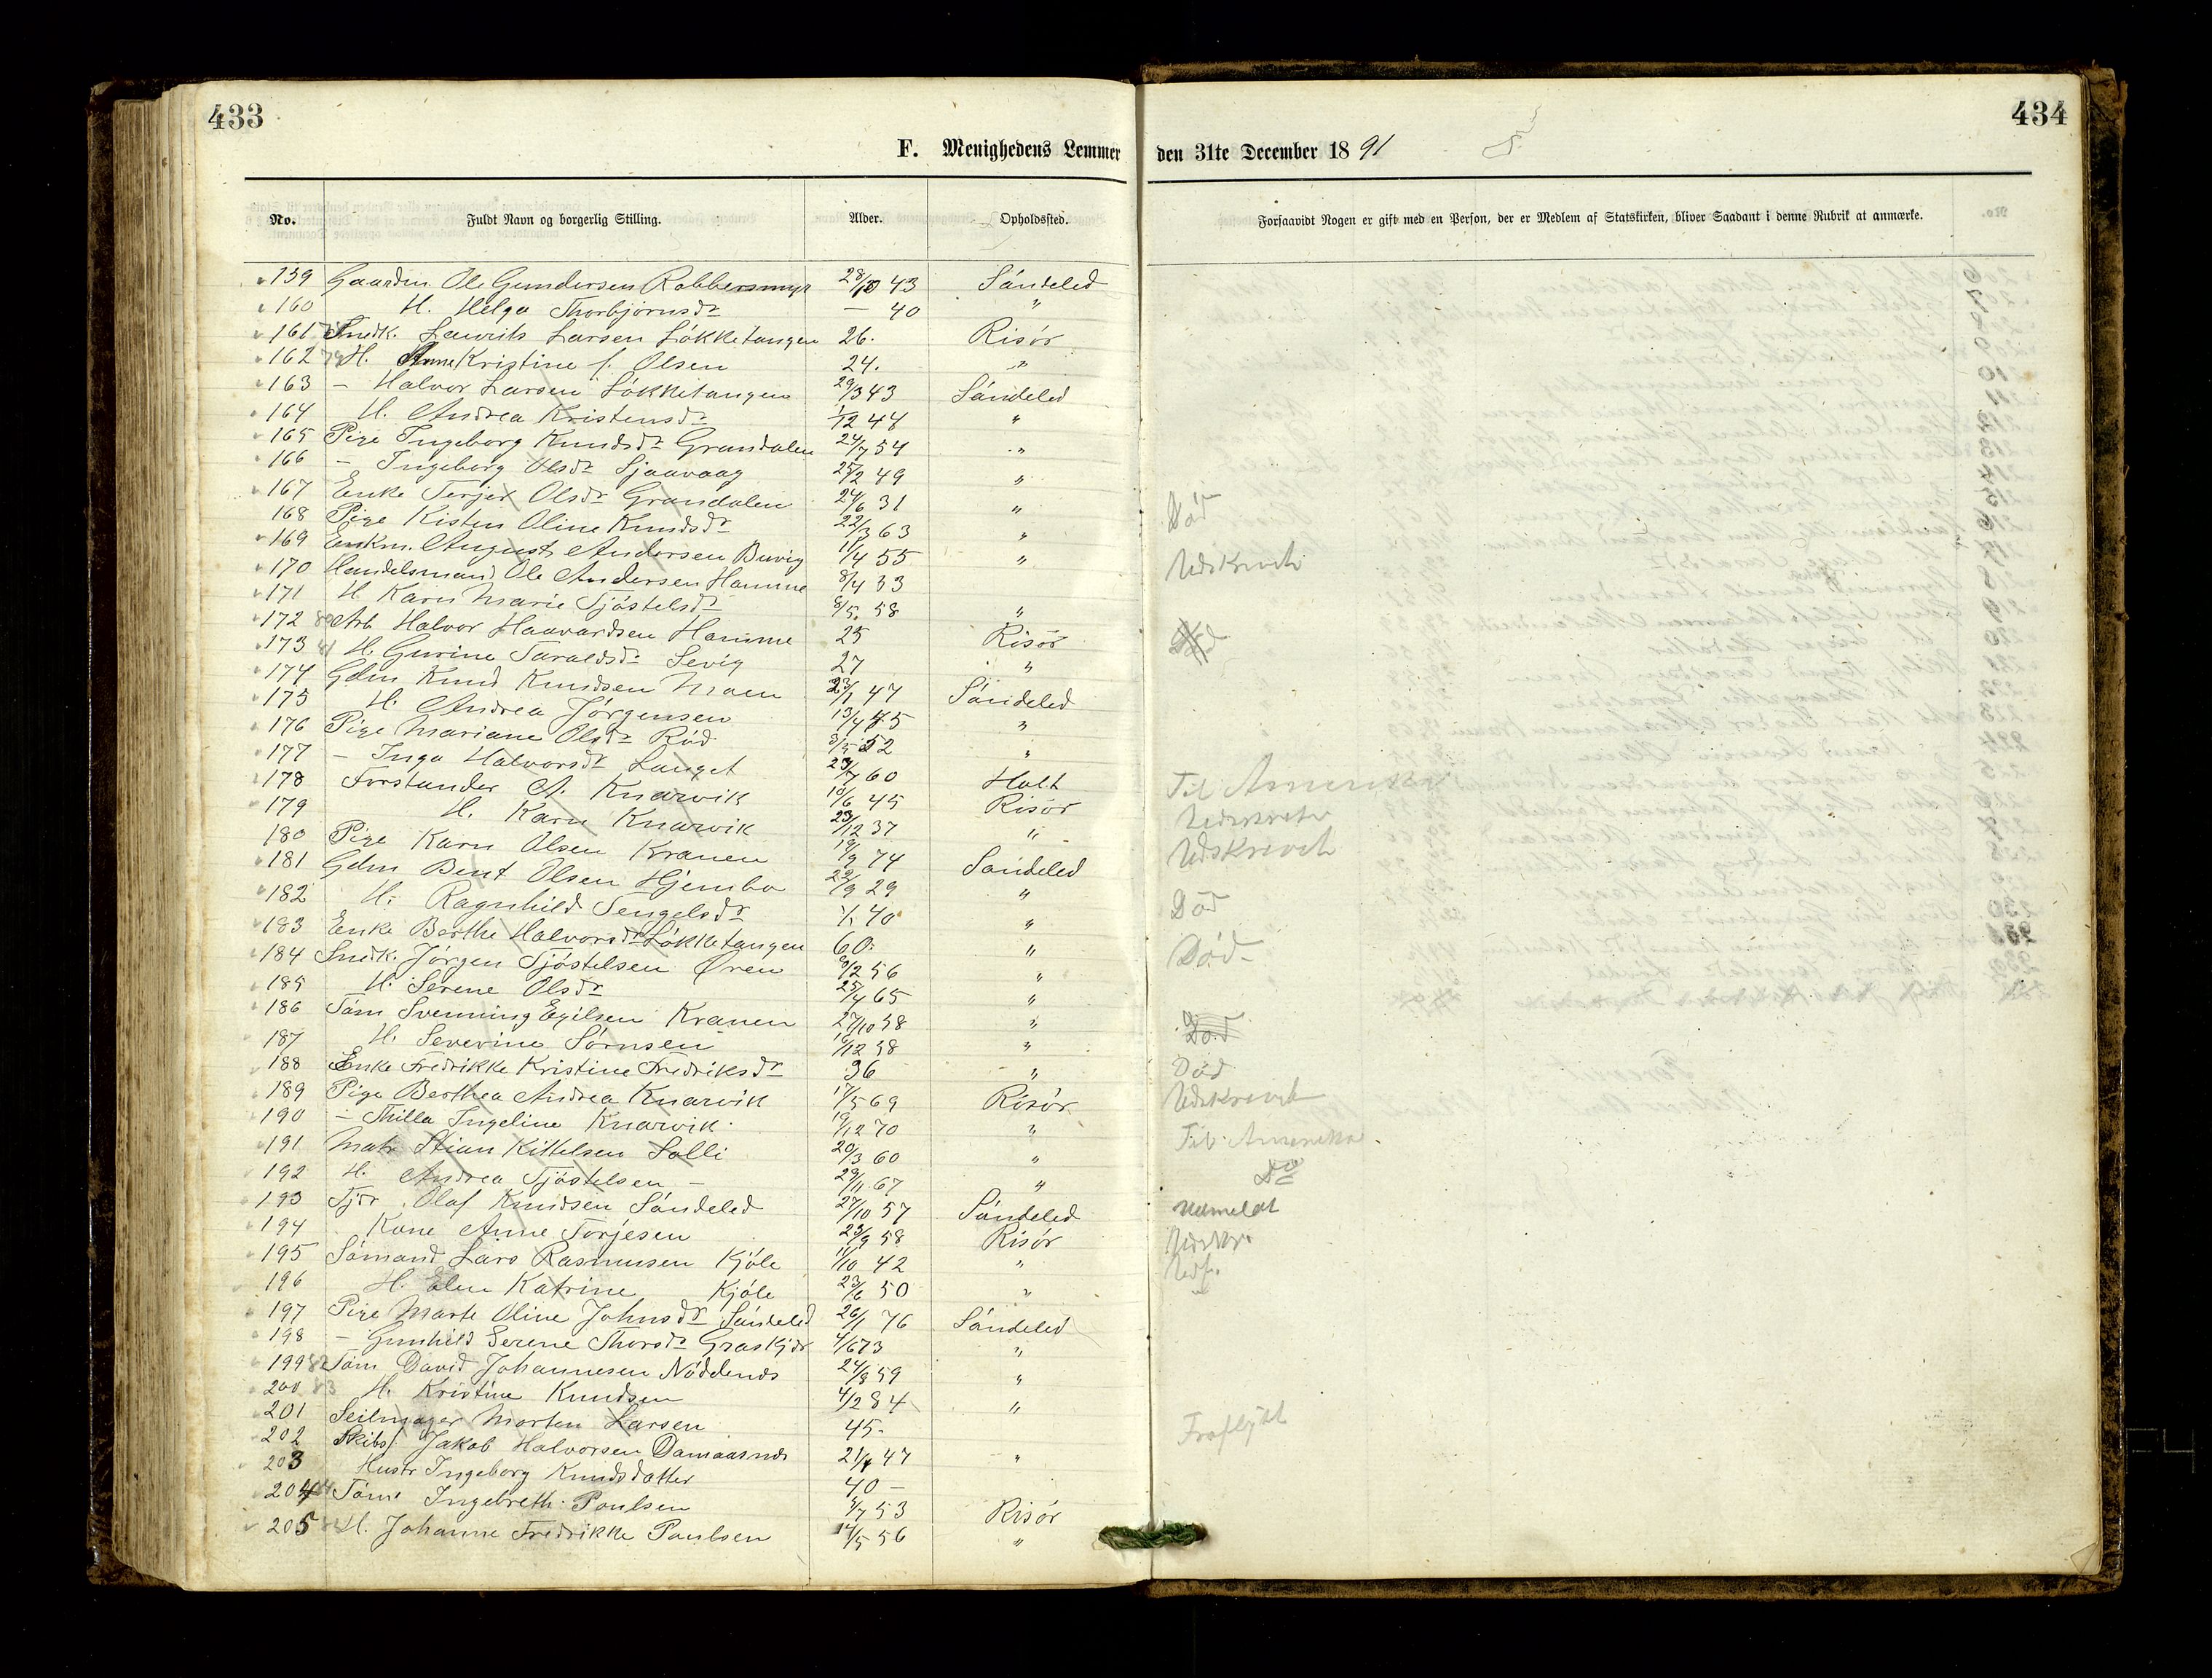 433
434
F. Menighedens Lemmer den 31te December 1891
No. Fuldt Navn og borgerlig Stilling. Alder. Opholdssted. Forsaavidt Nogen er gift med en Person, der er Medlem af Statskirken, bliver Saadant i denne Rubrik at anmærke.
159 Gaardm. Ole Gundersen Robbersmyr 28/10 43 Sóndeled
160 H. Helga Thorbjörnsdr — 40 "
161 Snedk. Lauvrits Larsen Lókketangen 26. Risór
162 H. Anne Kristine f. Olsen 24. "
163 – Halvor Larsen Lókketangen 29/3 43 Sóndeled
164 H. Andrea Kristensdr 1/12 44 "
165 Pige Ingeborg Knudsdr Grandalen 24/7 54 "
166 – Ingeborg Olsdr Sjaavaag 25/2 49 "
167 Enke Terjer Olsdr Grandalen 24/6 31 " Död
168 Pige Kisten Oline Knudsdr 22/3 63 "
169 Enkm. August Andersen Buvig 11/4 55 " Udskrevet
170 Handelsmand Ole Andersen Hamme 8/4 33
171 H Karn Marie Tjóstelsdr 8/5. 58 "
172 Arb Halvor Haavardsen Hamme 25 Risór Död
173 H. Gurine Taraldsdr Sevig 27 "
174 Gdm Knud Knudsen Moen 23/1 47 Sóndeled
175 H. Andrea Jörgensen 13/4 45 "
176 Pige Mariane Olsdr Röd 8/5 52 "
177 – Inga Halvorsdr Langet 23/7 60 Holt Til Amerika
178 Forstander A. Knarvik 10/6 45 Risör Udskrevet
179 H. Karn Knarvik 23/12 37 "
180 Pige Karn Olsen Kranen 19/9 74 Udskrevet
181 Gdm Bent Olsen Hjembo 22/9 29 Sondeled
182 H. Ragnhild Tengelsdr 1/1 40 " Död
183 Enke Berthe Halvorsdr Lökketangen 60. " Död
184 Snedk. Jörgen Tjóstelsen Øren 8/2 56 "
185 H. Serene Olsdr 25/4 65 "
186 Tóm Svenning Egilsen Kranen 27/10 58 " Död
187 H. Severine Sörnsen 16/12 58 "
188 Enke Fredrikke Kristine Fredriksdr 36 " Död
189 Pige Berthea Andrea Knarvik 17/5 69 Risór Udskrevet
190 – Thilla Ingeline Knarvik 19/12 70 " Til Amerika
191 Matr Stian Kittelsen Solli 20/3 60 "
192 H. Andrea Tjóstelsen – 29/11 67 " Do
193 Tjor. Olaf Knudsen Sóndeled 27/10 57 Sóndeled Udmeldt
194 Kone Anne Torjesen 23/9 58 Risór Udskr.
195 Sómand Lars Rasmusen Kjóle 11/10 42 " Uds.
196 H. Elen Katrine Kjóle 23/6 50 "
197 Pige Marte Oline Johnsdr Sóndeled 26/1 76 Sóndeled
198 – Gunhild Serene Thorsdr Graskjær 4/6 73 "
199 Tóm David Johannesen Nóddenæs 24/8 59 "
200 H. Kristine Knudsen 4/2 84 "
201 Seilmager Morten Larsen 45. Fraflyttet
202 Skibsf. Jakob Halvorsen Damaasnæs 21/1 47 "
203 Hustr Ingeborg Knudsdatter 40 –
204 Tóm Ingebreth Poulsen 5/7 53 Risór
205 H. Johanne Fredrikke Poulsen 14/5 56 "